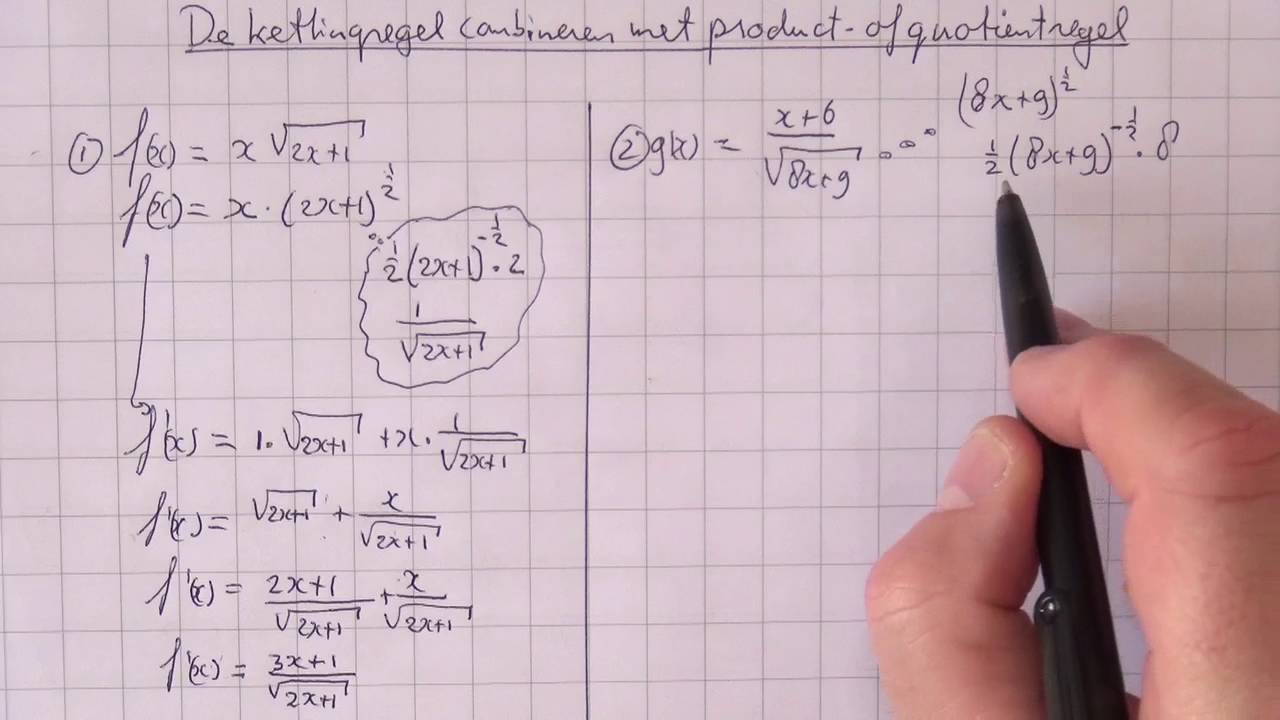 De kettingregel combineren met product- of quotientregel
① f(x) = x √(2x+1)
f(x) = x · (2x+1)^(1/2)
1/2 (2x+1)^(-1/2) · 2
1/√(2x+1)
f'(x) = 1 · √(2x+1) + x · 1/√(2x+1)
f'(x) = √(2x+1) + x/√(2x+1)
f'(x) = (2x+1)/√(2x+1) + x/√(2x+1)
f'(x) = (3x+1)/√(2x+1)
② g(x) = (x+6)/√(8x+9)
(8x+9)^(1/2)
1/2 (8x+9)^(-1/2) · 8